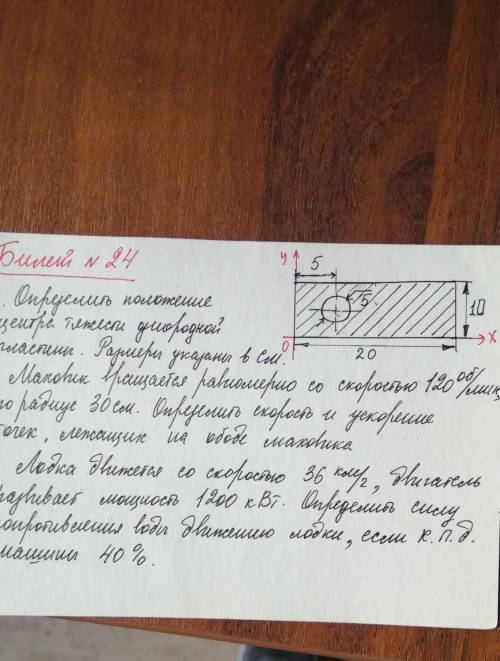 Билет № 24
. Определить положение
центра тяжести однородной
пластины. Размеры указаны в см.
y
5
5
10
0
x
20
Маховик вращается равномерно со скоростью 120 об/мин,
го радиус 30 см. Определить скорость и ускорение
точек, лежащих на ободе маховика
Лодка движется со скоростью 36 км/г, двигатель
развивает мощность 1200 кВт. Определить силу
сопротивления воды движению лодки, если к.п.д.
машины 40%.